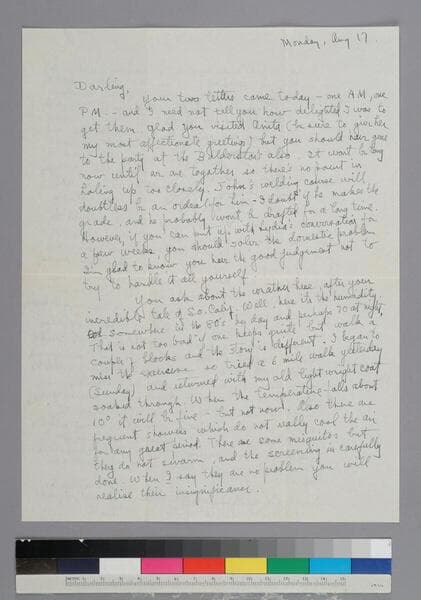 Monday, Aug 17.
Darling,
Your two letters came today – one A.M, one
P.M. – and I need not tell you how delighted I was to
get them. Glad you visited Anita (be sure to give her
my most affectionate greeting) but you should have gone
to the party at the Balderston's also. It won't be long
now until we are together so there's no point in
holing up too closely. John's welding course will
doubtless be an ordeal for him – I doubt if he makes the
grade, and he probably won't be drafted for a long time.
However, if you can put up with Lydia's conversation for
a few weeks, you should solve the domestic problem
I'm glad to know you have the good judgement not to
try to handle it all yourself.
You ask about the weather here, after your
incredible tale of So. Calif. Well, here it's the humidity.
Somewhere in the 80's by day and perhaps 70 at night.
That is not too bad if one keeps quiet but walk a
couple of blocks and the flow is different. I began to
miss the exercise so tried a 6 mile walk yesterday
(Sunday) and returned with my old light weight coat
soaked through. When the temperature falls about
10° it will be fine – but not now. Also there are
frequent showers which do not really cool the air
for any great period. There are some mosquitos but
they do not swarm, and the screening is carefully
done. When I say they are no problem you will
realise their insignificance.